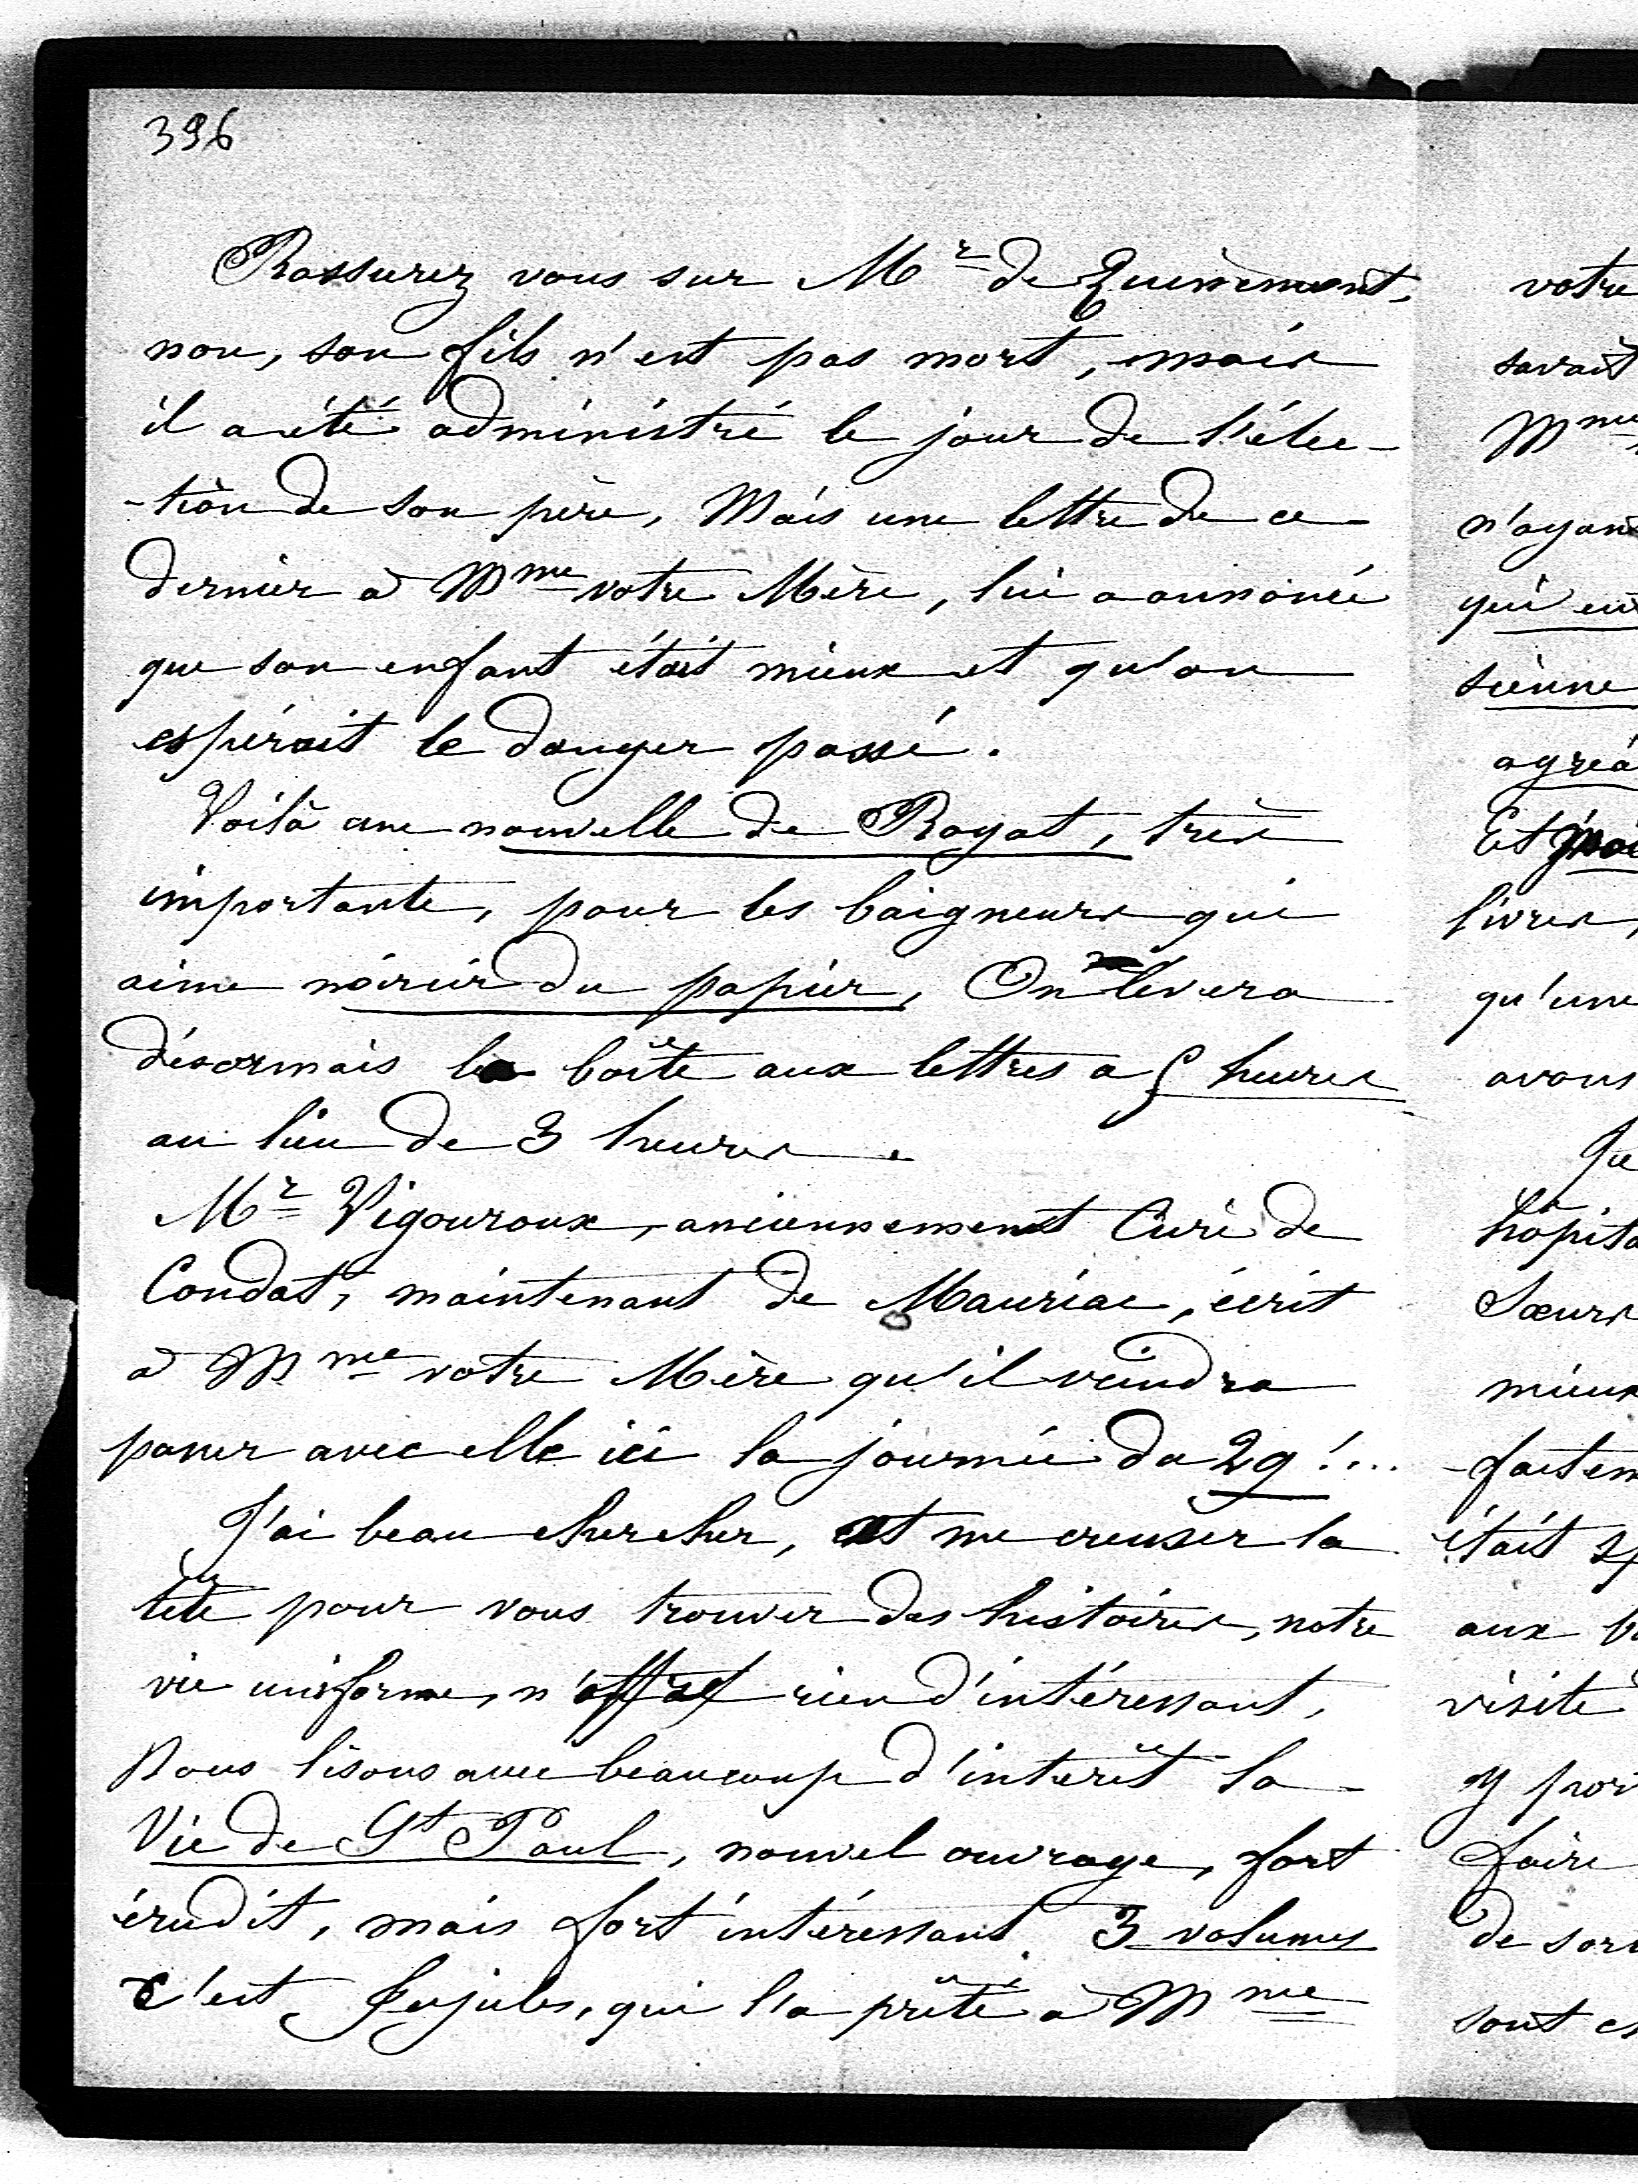 396
Rassurez vous sur Mr de
non, son fils n'est pas mort, mais
il a été administré le jour de l'élec-
-tion de son père, Mais une lettre de ce
dernier à Mme votre Mère, lui a annoncé
que son enfant était mieux et qu'on
espérait le danger passé.
Voilà une nouvelle de Royat, très
importante, pour les baigneurs qui
aime noircir du papier, On lèvera
désormais la boîte aux lettres a 5 heures
au lieu de 3 heures.
Mr Vigouroux, anciennement Curé de
Condat, maintenant de Mauriac, écrit
à Mme votre Mère qu'il viendra
passer avec elle ici la journée du 29!...
J'ai beau chercher, et me creuser la
tête pour vous trouver des histoires, notre
vie uniforme, n'offre rien d'intéressant,
Nous lisons avec beaucoup d'intérêt la
Vie de St Paul, nouvel ouvrage, fort
érudit, mais fort intéressant. 3 volumes
c'est qui l'a prêté à Mme
votre
savait
Mme
n'ayant
qui
sienne
agréa
Et
livres,
qu'une
avons
Je
hôpita
Sœurs
mieux
-faitem
était
aux
visite
y
faire
de
sont